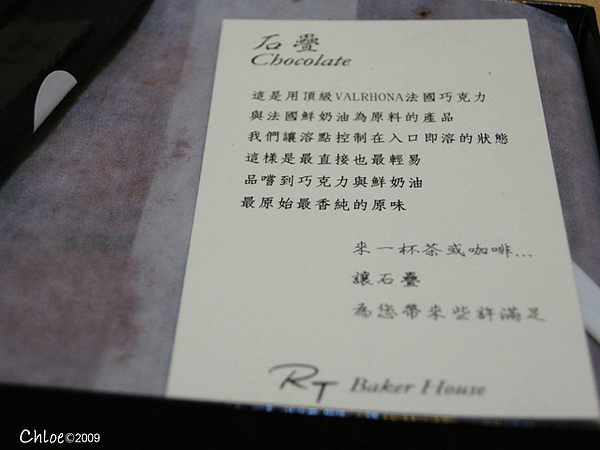 石疊
Chocolate
這是用頂級VALRHONA法國巧克力
與法國鮮奶油為原料的產品
我們讓溶點控制在入口即溶的狀態
這樣是最直接也最輕易
品嚐到巧克力與鮮奶油
最原始最香純的原味
來一杯茶或咖啡...
讓石疊
為您帶來些許滿足
RT Baker House
Chloe©2009